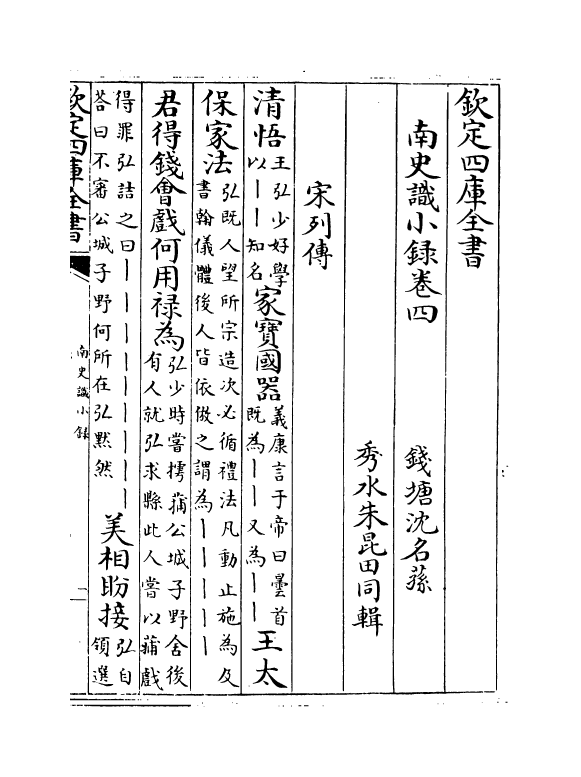 欽定四庫全書
南史識小録卷四
錢塘沈名蓀
秀水朱昆田同輯
宋列傳
清悟王弘少好學以丨丨知名家寶國器義康言于帝曰曇首既為丨丨又為丨丨王太
保家法弘既人望所宗造次必循禮法凡動止施為及書翰儀體後人皆依倣之謂為丨丨丨丨丨
君得錢會戲何用禄為弘少時嘗摴蒱公城子野舍後有人就弘求縣此人嘗以蒱戲
得罪弘詰之曰丨丨丨丨丨丨丨丨丨荅曰不審公城子野何所在弘黙然美相盼接弘自領選
欽定四庫全書
南史識小録